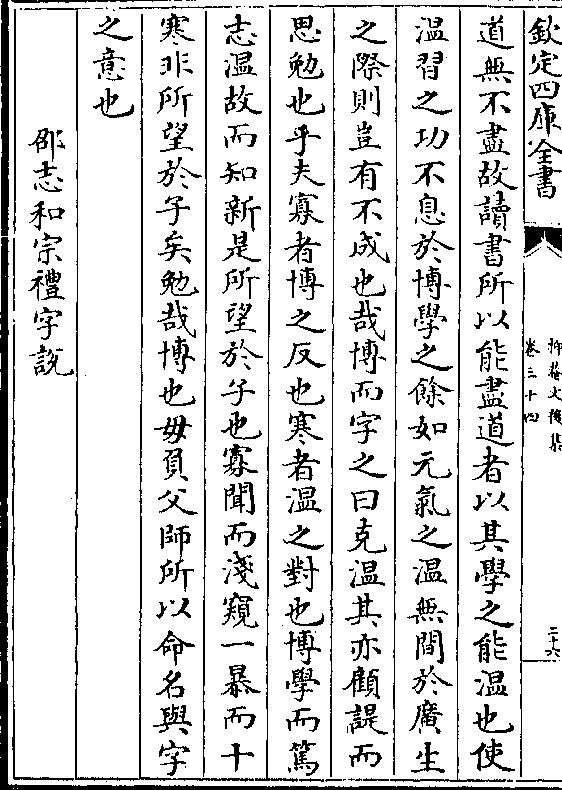 欽定四庫全書
抑菴文後集
卷三十四
二十六
道無不盡故讀書所以能盡道者以其學之能温也使
温習之功不息於博學之餘如元氣之温無間於廣生
之際則豈有不成也哉博而字之曰克温其亦顧諟而
思勉也乎夫寡者博之反也寒者温之對也博學而篤
志温故而知新是所望於子也寡聞而淺窺一暴而十
寒非所望於子矣勉哉博也毋負父師所以命名與字
之意也
邵志和宗禮字説